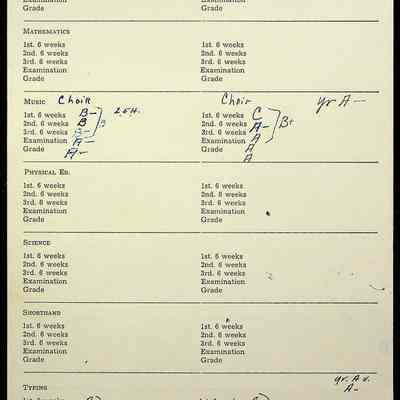 Examination
Grade
MATHEMATICS
1st. 6 weeks 1st. 6 weeks
2nd. 6 weeks 2nd. 6 weeks
3rd. 6 weeks 3rd. 6 weeks
Examination Examination
Grade Grade
MUSIC Choir Choir yr A-
1st. 6 weeks B- 1st. 6 weeks C
2nd. 6 weeks B B 2nd. 6 weeks A- B+
3rd. 6 weeks B- 3rd. 6 weeks A
Examination A- Examination A
Grade A- Grade A
PHYSICAL ED.
1st. 6 weeks 1st. 6 weeks
2nd. 6 weeks 2nd. 6 weeks
3rd. 6 weeks 3rd. 6 weeks
Examination Examination
Grade Grade
SCIENCE
1st. 6 weeks 1st. 6 weeks
2nd. 6 weeks 2nd. 6 weeks
3rd. 6 weeks 3rd. 6 weeks
Examination Examination
Grade Grade
SHORTHAND
1st. 6 weeks 1st. 6 weeks
2nd. 6 weeks 2nd. 6 weeks
3rd. 6 weeks 3rd. 6 weeks
Examination Examination
Grade Grade
yr. Av.
TYPING A-